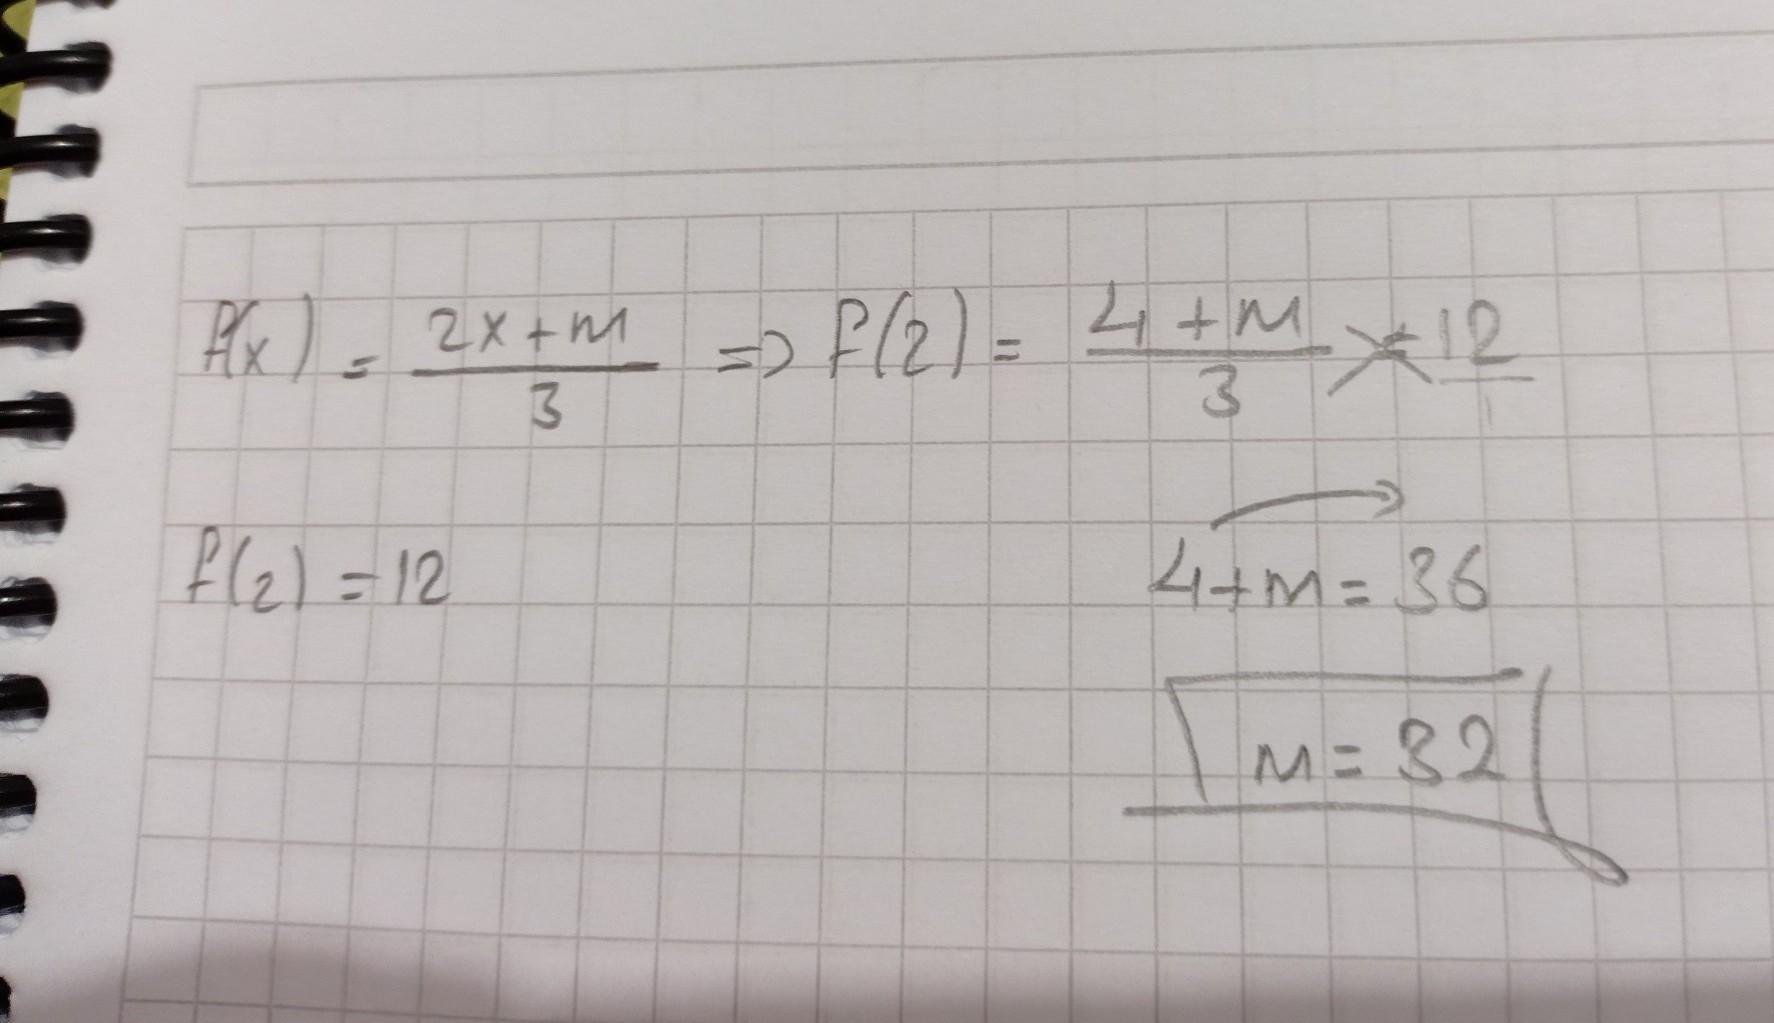 f(x) = 2x+m / 3 => f(2) = 4+m / 3 = 12 / 1
f(2) = 12
4+m = 36
m = 32